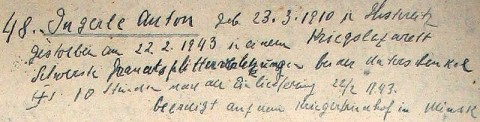 48. Ingerle Anton geb. 23.3.1910 in
gestorben am 22.2.1943 in einem Kriegslazarett
Schwerste Granatsplitterverletzungen beider Unterschenkel
10 Stunden nach der Einlieferung 22/2 1943.
beerdigt auf dem Kriegerfriedhof in Minsk